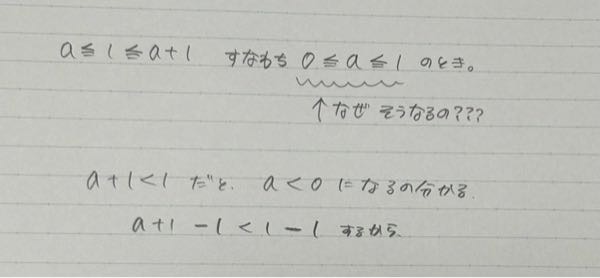 a≦1≦a+1 すなわち 0≦a≦1 のとき。
↑なぜ そうなるの???
a+1<1 だと、a<0 になるの分かる。
a+1-1<1-1 するから